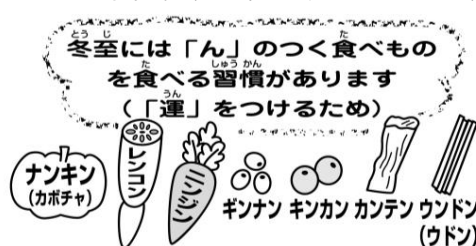 冬至には「ん」のつく食べもの
を食べる習慣があります
(「運」をつけるため)
ナンキン
(カボチャ)
レンコン
ニンジン
ギンナン
キンカン
カンテン
ウンドン
(ウドン)